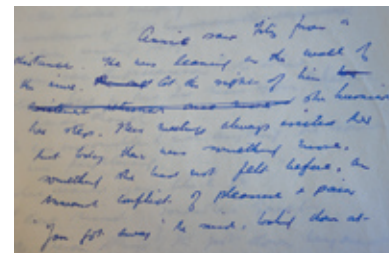 Annie saw Fitz from a
distance. He was leaning on the wall of
the inn. At the sight of him
she hurried
her steps. Their meetings always excited her
but today there was something more,
something she had not felt before, an
unusual conflict of pleasure & pain
"You got away" he said, looking down at